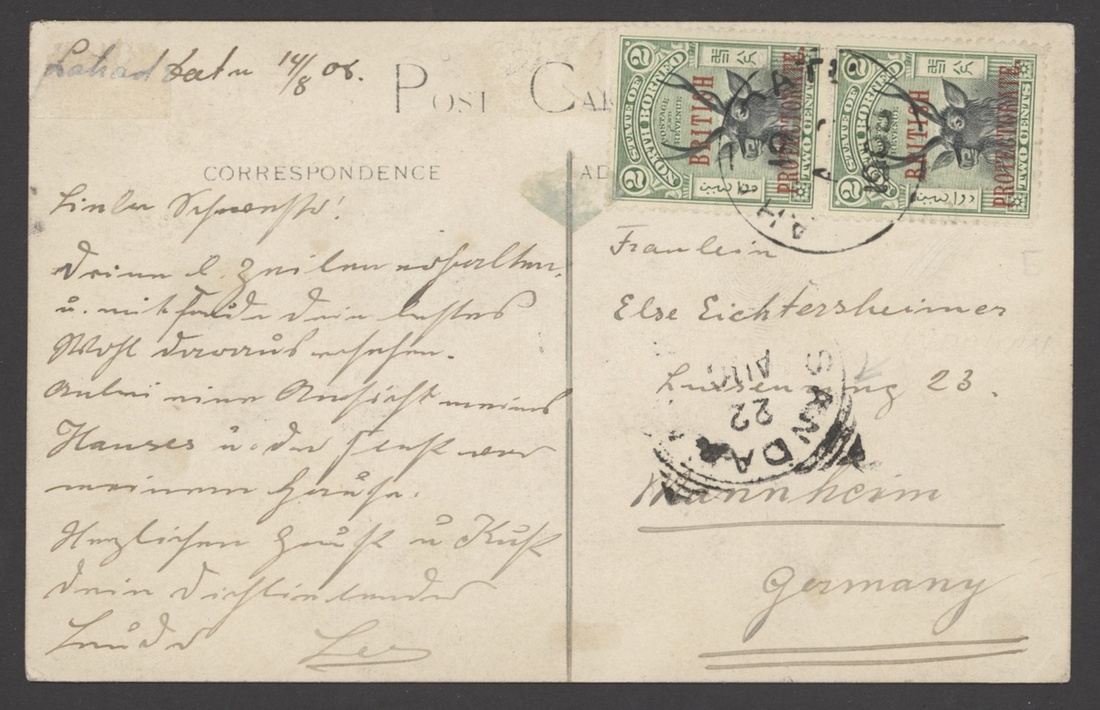 Lahad Datu 14/8 06.
POST CAR
CORRESPONDENCE
AD
Liebe Schwester!
Deine l. Zeilen erhalten,
u. mit Freude Dein bestes
Wohl daraus ersehen.
Anbei eine Ansicht meines
Hauses u. der
meinem Hause.
Herzlichen Gruß u Kuß
Dein Dichliebender
Bruder Leo
STATE OF
NORTH BORNEO
POSTAGE
AND
REVENUE
BRITISH
PROTECTORATE.
TWO CENTS
2
2
STATE OF
NORTH BORNEO
POSTAGE
AND
REVENUE
BRITISH
PROTECTORATE.
TWO CENTS
2
2
Fraulein
Else Eichtersheimer
23.
SANDA
AUG
22
Mannheim
Germany